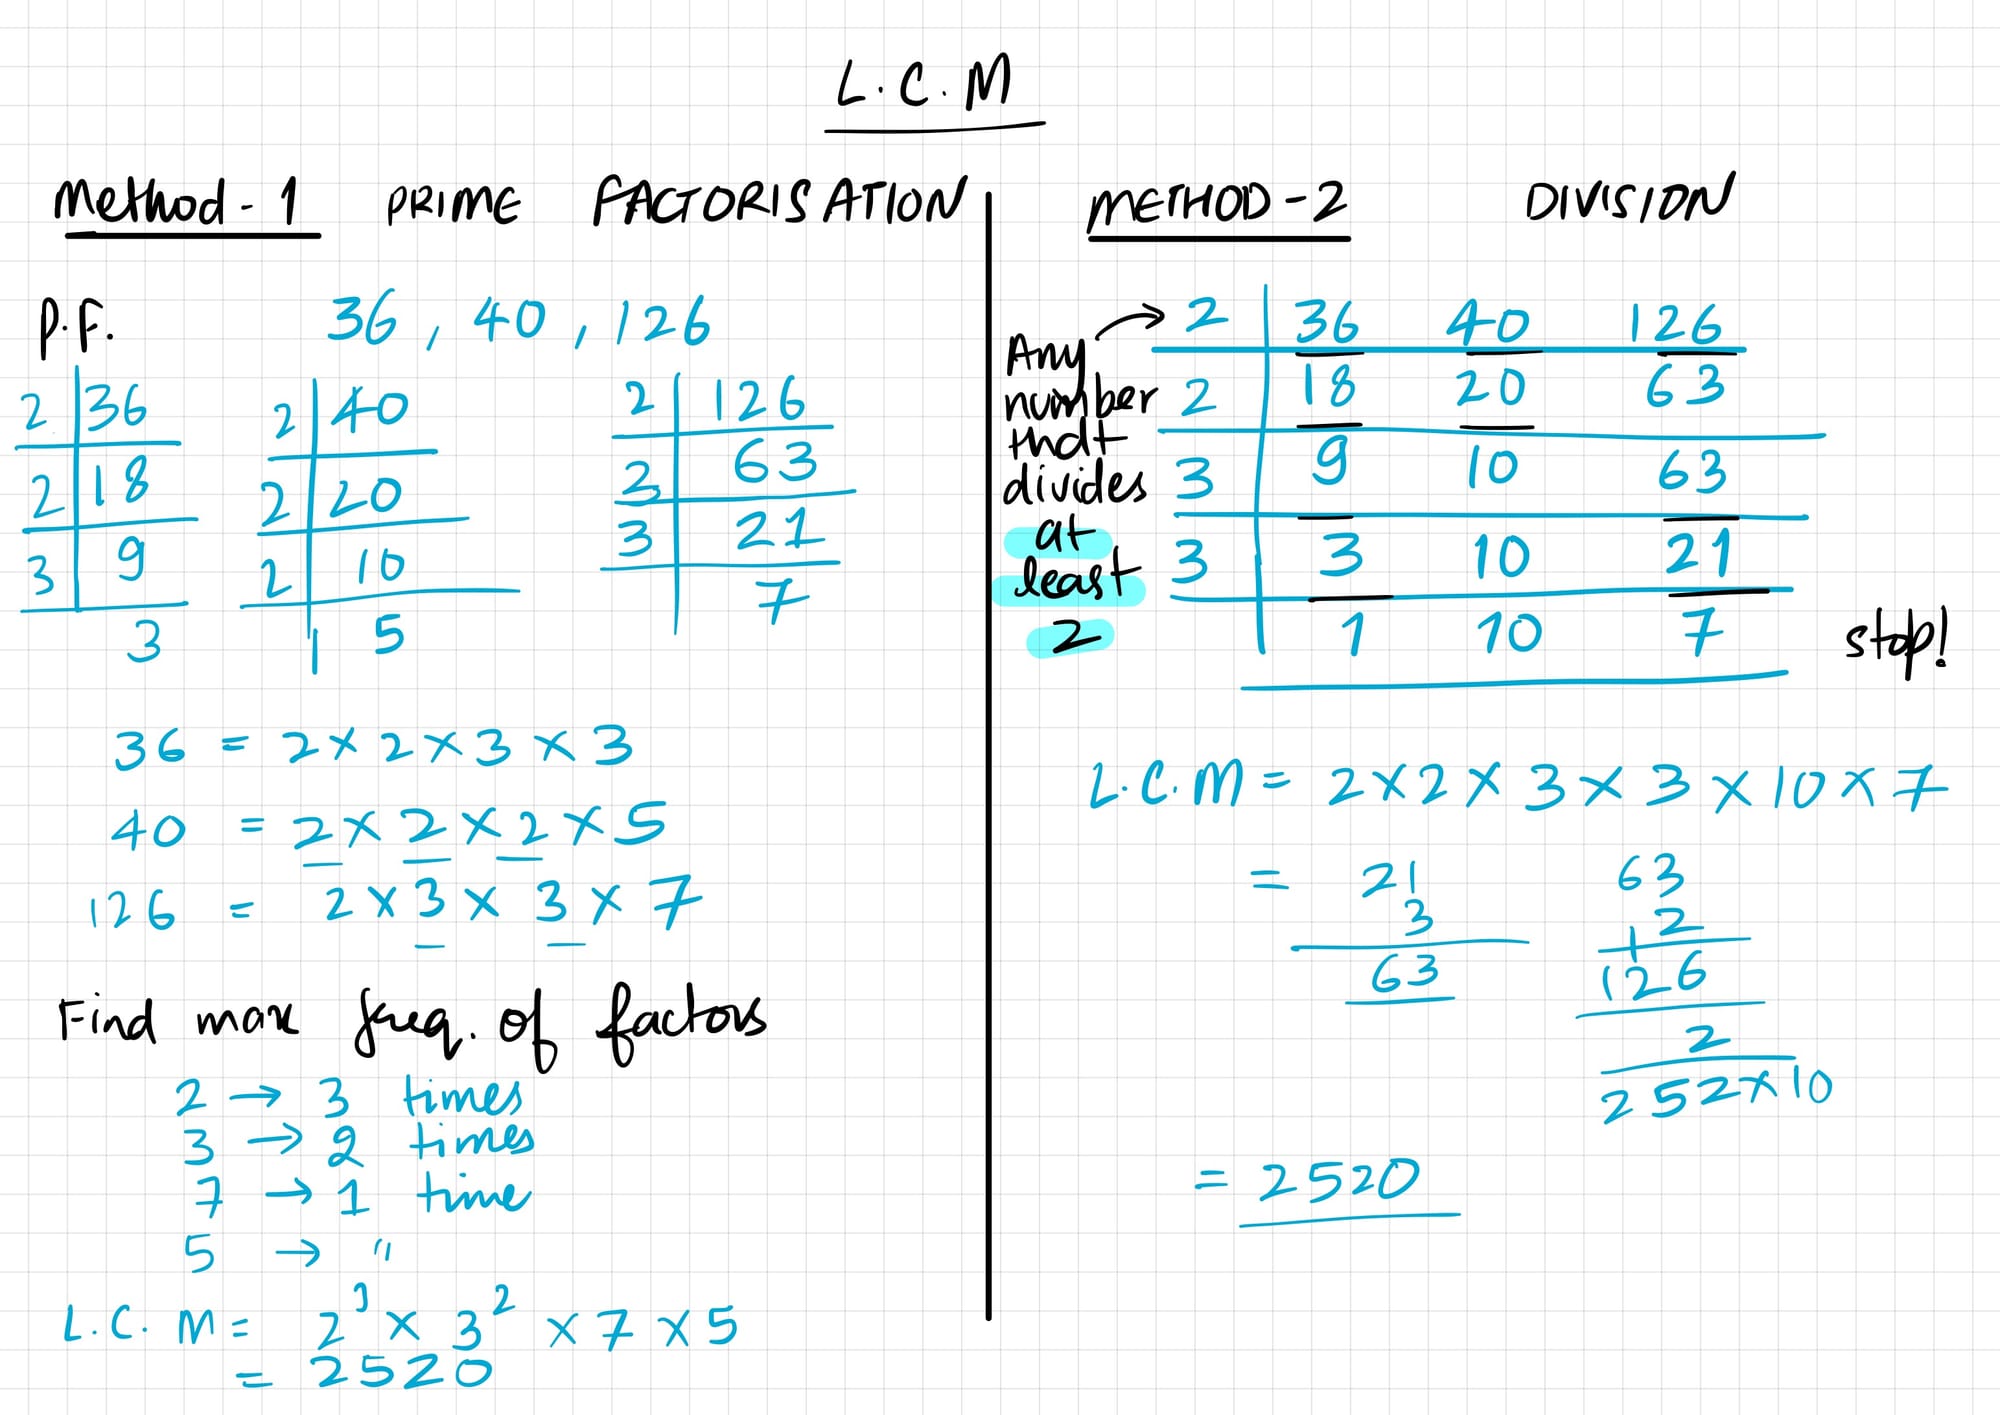 L.C.M
Method-1 PRIME FACTORISATION
P.F. 36, 40, 126
2 36
2 18
3 9
3
2 40
2 20
2 10
5
2 126
3 63
3 21
7
36 = 2×2×3×3
40 = 2×2×2×5
126 = 2×3×3×7
Find max freq. of factors
2 → 3 times
3 → 2 times
7 → 1 time
5 → "
L.C.M = 2³ × 3² × 7 × 5
= 2520
METHOD-2 DIVISION
Any
number
that
divides
at
least
2
→ 2 36 40 126
2 18 20 63
3 9 10 63
3 3 10 21
1 10 7 stop!
L.C.M = 2×2×3×3×10×7
= 21
3
63
63
2
126
2
252×10
= 2520